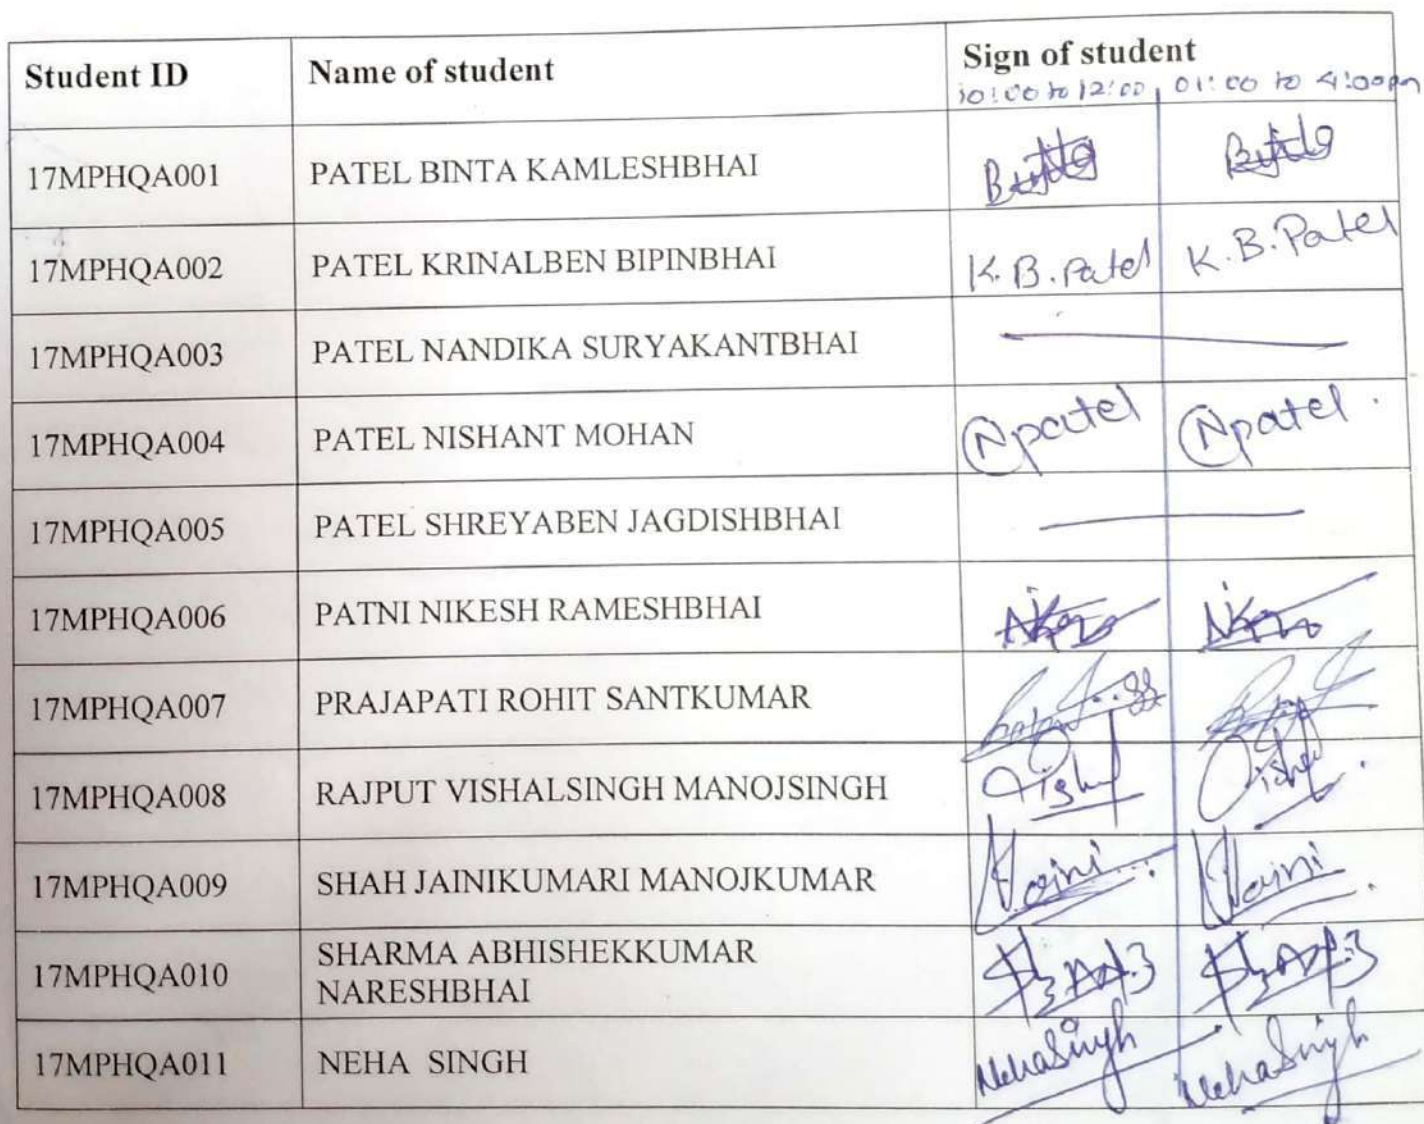 Student ID Name of student Sign of student
10:00 to 12:00 01:00 to 4:00pm
17MPHQA001 PATEL BINTA KAMLESHBHAI
17MPHQA002 PATEL KRINALBEN BIPINBHAI K.B.Patel K.B.Patel
17MPHQA003 PATEL NANDIKA SURYAKANTBHAI
17MPHQA004 PATEL NISHANT MOHAN Npatel Npatel.
17MPHQA005 PATEL SHREYABEN JAGDISHBHAI
17MPHQA006 PATNI NIKESH RAMESHBHAI
17MPHQA007 PRAJAPATI ROHIT SANTKUMAR
17MPHQA008 RAJPUT VISHALSINGH MANOJSINGH
17MPHQA009 SHAH JAINIKUMARI MANOJKUMAR
17MPHQA010 SHARMA ABHISHEKKUMAR
NARESHBHAI
17MPHQA011 NEHA SINGH NehaSingh NehaSingh